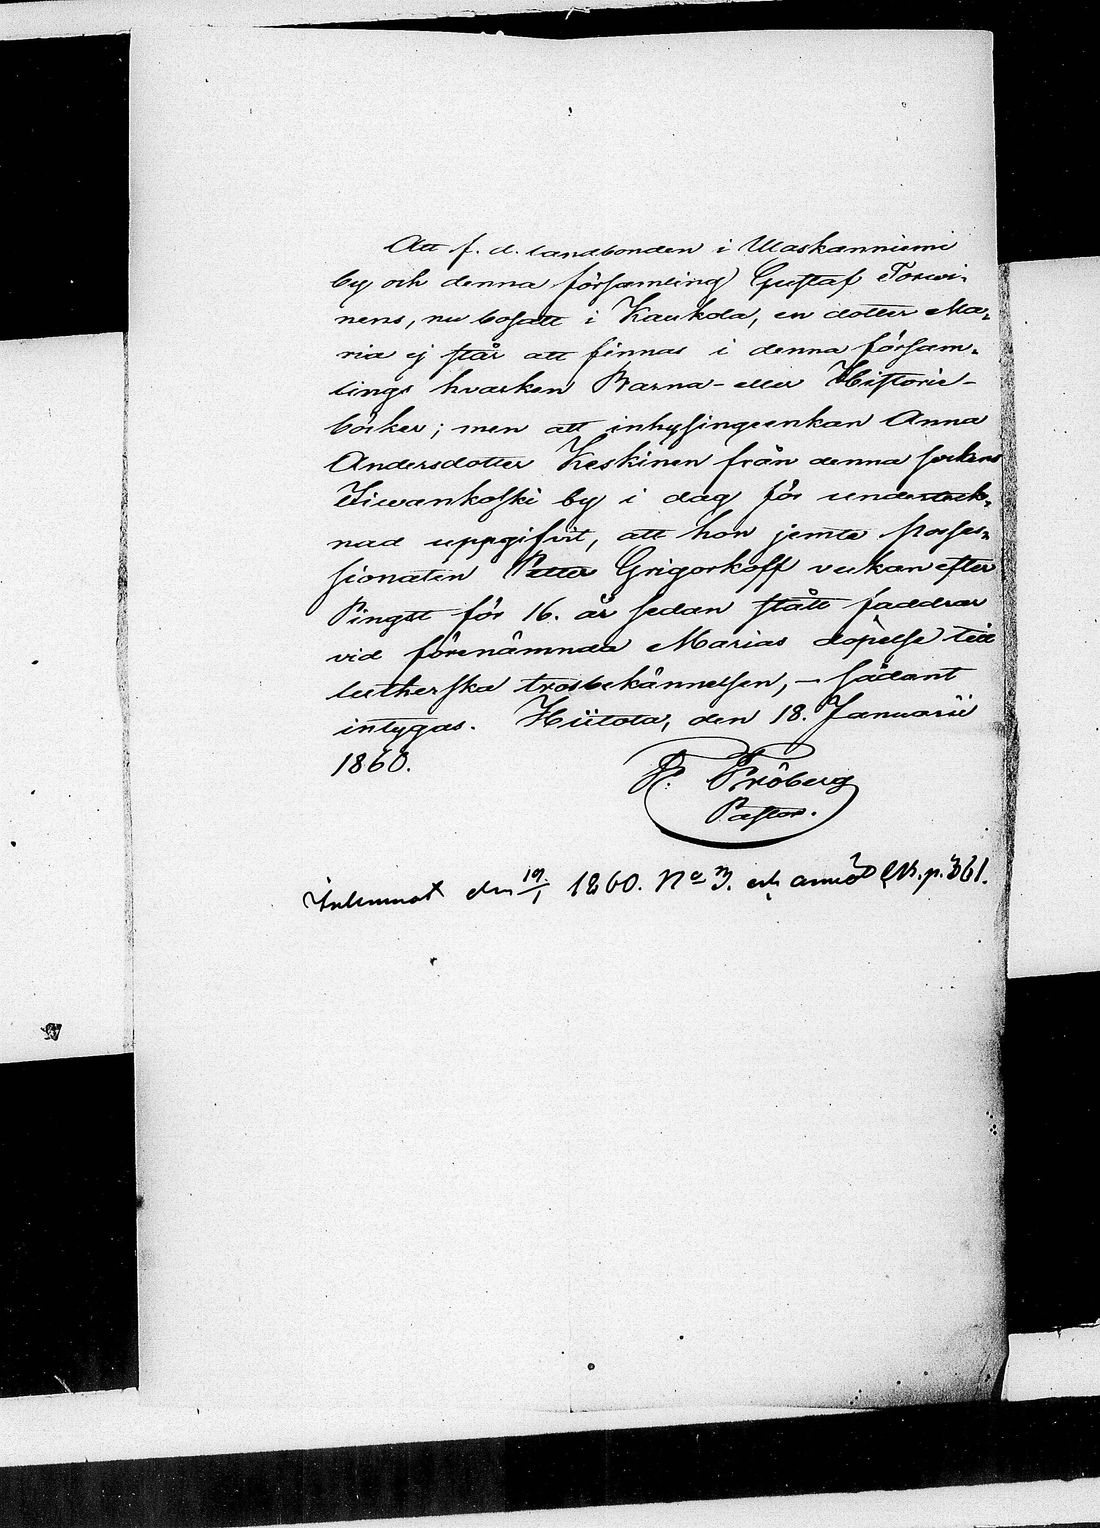 Att f. d. landbonden i Waskanniemi
by och denna församling Gustaf Torvi-
nens, nu bosatt i Kaukola, en dotter Ma-
ria ej står att finnas i denna försam-
lings hvarken Barna- eller Historie-
böcker; men att inhysingeenkan Anna
Andersdotter Keskinen från denna sockens
Tiwankoski by i dag för underteck-
nad uppgifvit, att hon jemte posses-
sionaten Petter Grigorkoff veckan efter
Pingst för 16. år sedan stått faddrar
vid förenämnda Marias döpelse till
lutherska trosbekännelsen, – sådant
intygas. Hiitola, den 18. Januarii
1860.
F. Fröberg
Pastor.
Inlemnat den 19/1 1860. No 3. och p. 361.